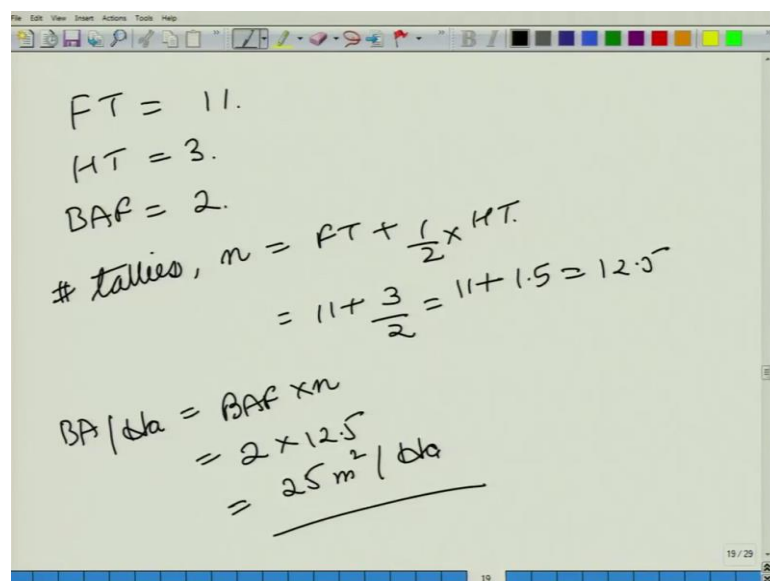 File Edit View Insert Actions Tools Help
B I
FT = 11.
HT = 3.
BAF = 2.
# tallies, n = FT + 1/2 × HT.
= 11 + 3/2 = 11 + 1.5 = 12.5
BA/ha = BAF × n
= 2 × 12.5
= 25 m² / ha
19 / 29
19